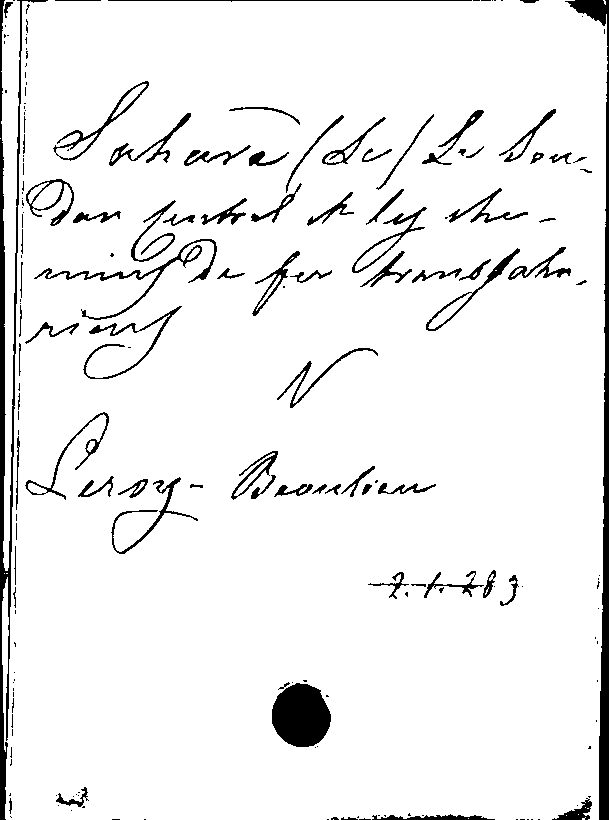 Sahara (Le) Le Sou-
dan central et les che-
mins de fer transsaha-
riens
V
Leroy-Beaulieu
2.1.283